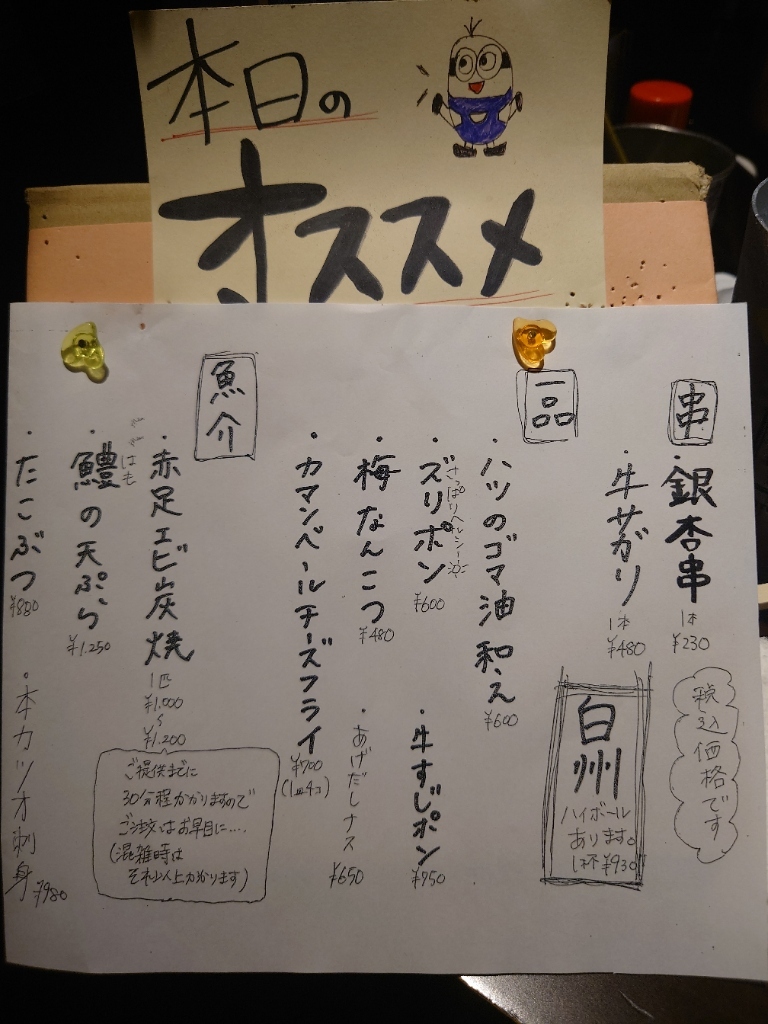 本日の
オススメ
串
・銀杏串
1本
¥230
・牛サガリ
1本
¥480
税込価格です
白州
ハイボール
あります。
1杯¥930
一品
・ハツのゴマ油和え
¥600
・ズリポン
さっぱりヘルシー
¥600
・牛すじポン
¥750
・梅なんこつ
¥480
・あげだしナス
¥650
・カマンベールチーズフライ
¥700
(1皿4コ)
魚介
・赤足エビ炭焼
1匹
¥1,000
~
¥1,200
ご提供までに
30分程かかりますので
ご注文はお早目に....
(混雑時は
それ以上かかります)
・鱧の天ぷら
はも
¥1,250
・たこぶつ
¥880
・本カツオ刺身
¥980